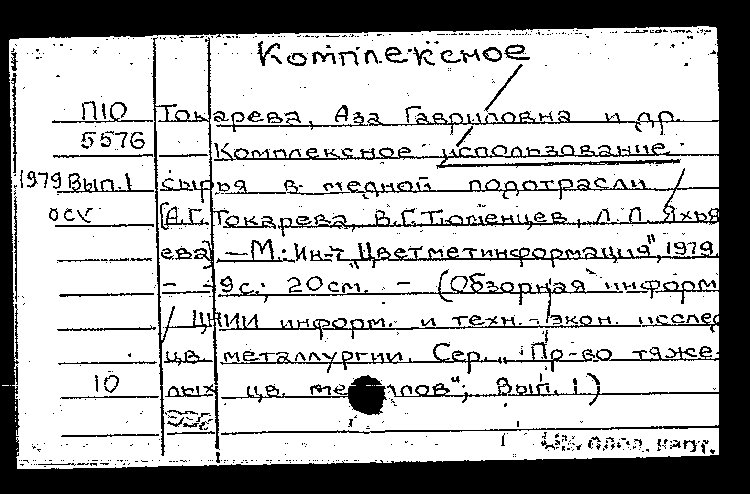 Комплексное
П10 Токарева, Аза Гавриловна и др.
5576 Комплексное использование
1979 Вып. 1 сырья в медной подотрасли
ОСУ [А.Г. Токарева, В.Г. Тюменцев, Л.Л. Яхья
ева] – М.: Ин-т "Цветметинформация", 1979.
– 9с.; 20 см. – (Обзорная информ
/ ЦНИИ информ. и техн.-экон. исслед
цв. металлургии. Сер. „Пр-во тяже-
10 лых цв. металлов"; Вып. 1)